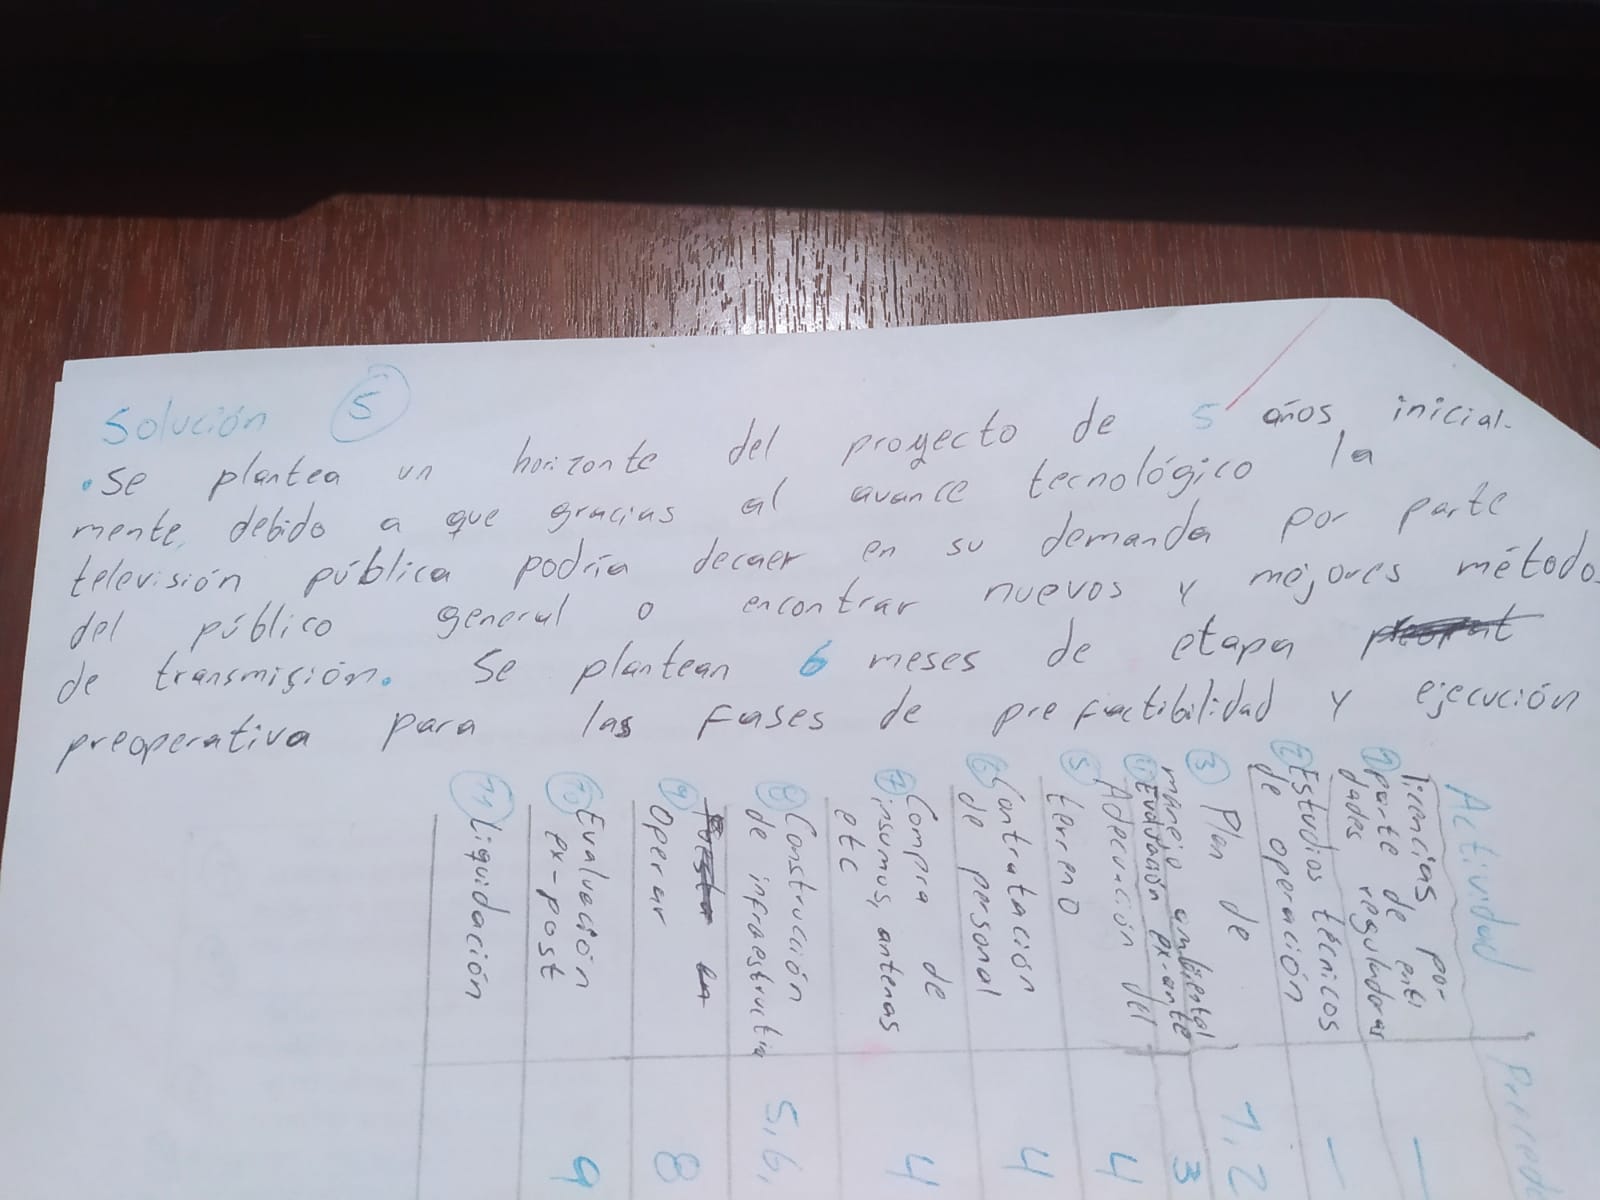 Solución 5
• Se plantea un horizonte del proyecto de 5 años inicial-
mente, debido a que gracias al avance tecnológico la
televisión pública podría decaer en su demanda por parte
del público general o encontrar nuevos y mejores método
de transmisión. Se plantean 6 meses de etapa
preoperativa para las fases de prefactibilidad y ejecución
Actividad
1 licencias por
parte de enti
dades reguladoras
—
2 Estudios técnicos
de operación
—
3 Plan de
manejo ambiental
1, 2
4 Evaluación ex-ante
3
5 Adecuación del
terreno
4
6 Contratación
de personal
4
7 Compra de
insumos, antenas
etc
4
8 Construcción
de infraestructura
5, 6,
9 Operar
8
10 Evaluación
ex-post
9
11 Liquidación